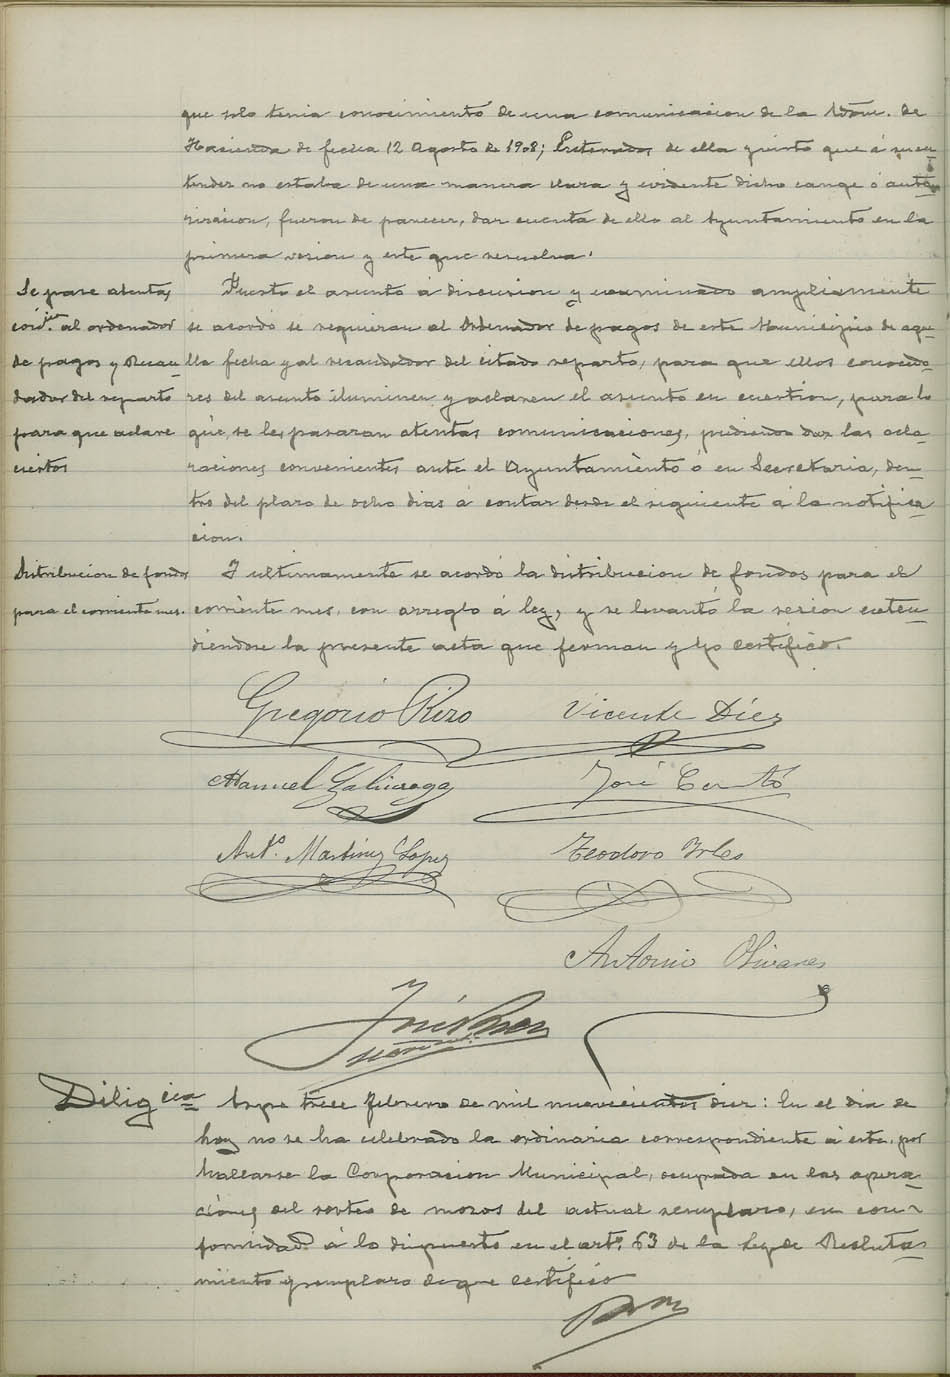 que solo tenia conocimiento de una comunicacion de la Adón. de
Hacienda de fecha 12 Agosto de 1908; Enterados de ella y visto que á su en-
tender no estaba de una manera clara y evidente dicho cange ó auto-
rizacion, fueron de parecer, dar cuenta de ello al Ayuntamiento en la
primera sesion y este que resuelva.
Se pase atentas
coid.ones al ordenador
de pagos y Recau-
dador del reparto
para que aclare
ciertos
Puesto el asunto á discusion y examinado ampliamente
se acordó se requieran al Ordenador de pagos de este Municipio de aque-
lla fecha y al recaudador del citado reparto, para que ellos conocedo-
res del asunto iluminen y aclaren el asunto en cuestion, para lo
que, se les pasaran atentas comunicaciones, pudiendo dar las acla-
raciones convenientes ante el Ayuntamiento ó en Secretaria, den-
tro del plazo de ocho dias á contar desde el siguiente á la notifica-
cion.
Distribucion de fondos
para el corriente mes.
Y ultimamente se acordó la distribucion de fondos para el
corriente mes, con arreglo á ley, y se levantó la sesion exten-
diendose la presente acta que firman y yo certifico.
Gregorio Rizo Vicente Díez
Manuel José Cantó
Ant.º Martinez Lopez Teodoro Irles
Antonio Olivares
José
Diligcia Aspe trece Febrero de mil novecientos diez: En el dia de
hoy no se ha celebrado la ordinaria correspondiente á este, por
hallarse la Corporacion Municipal, ocupada en las opera-
ciones del sorteo de mozos del actual reemplazo, en con-
formidad á lo dispuesto en el artº. 63 de la Ley de Recluta-
miento y reemplazo de que certifico